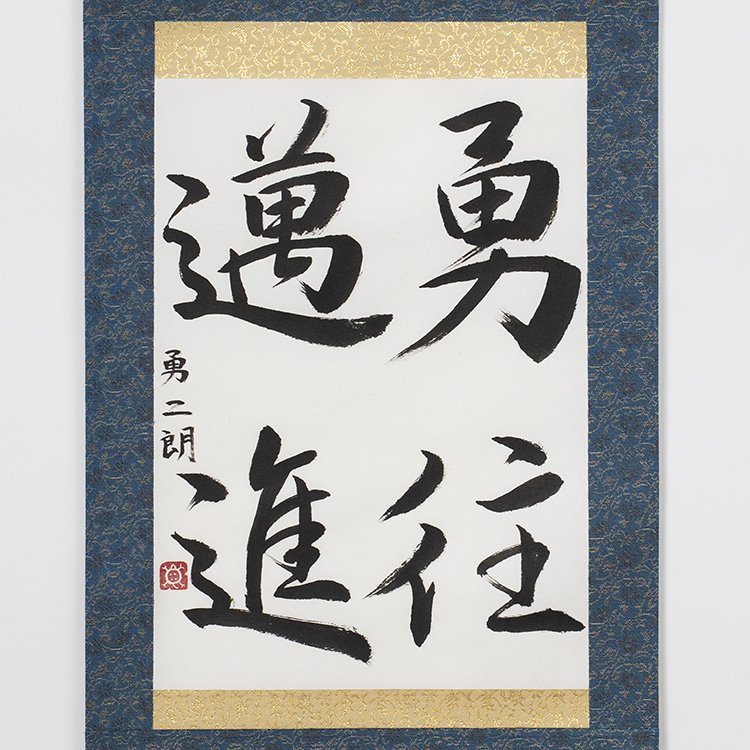 勇往
邁進
勇二朗